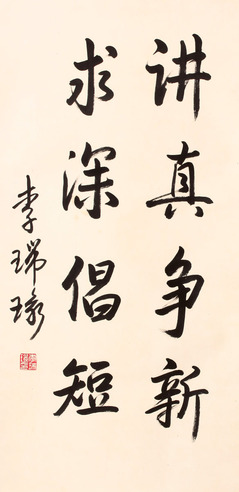 讲真争新
求深倡短
李瑞环